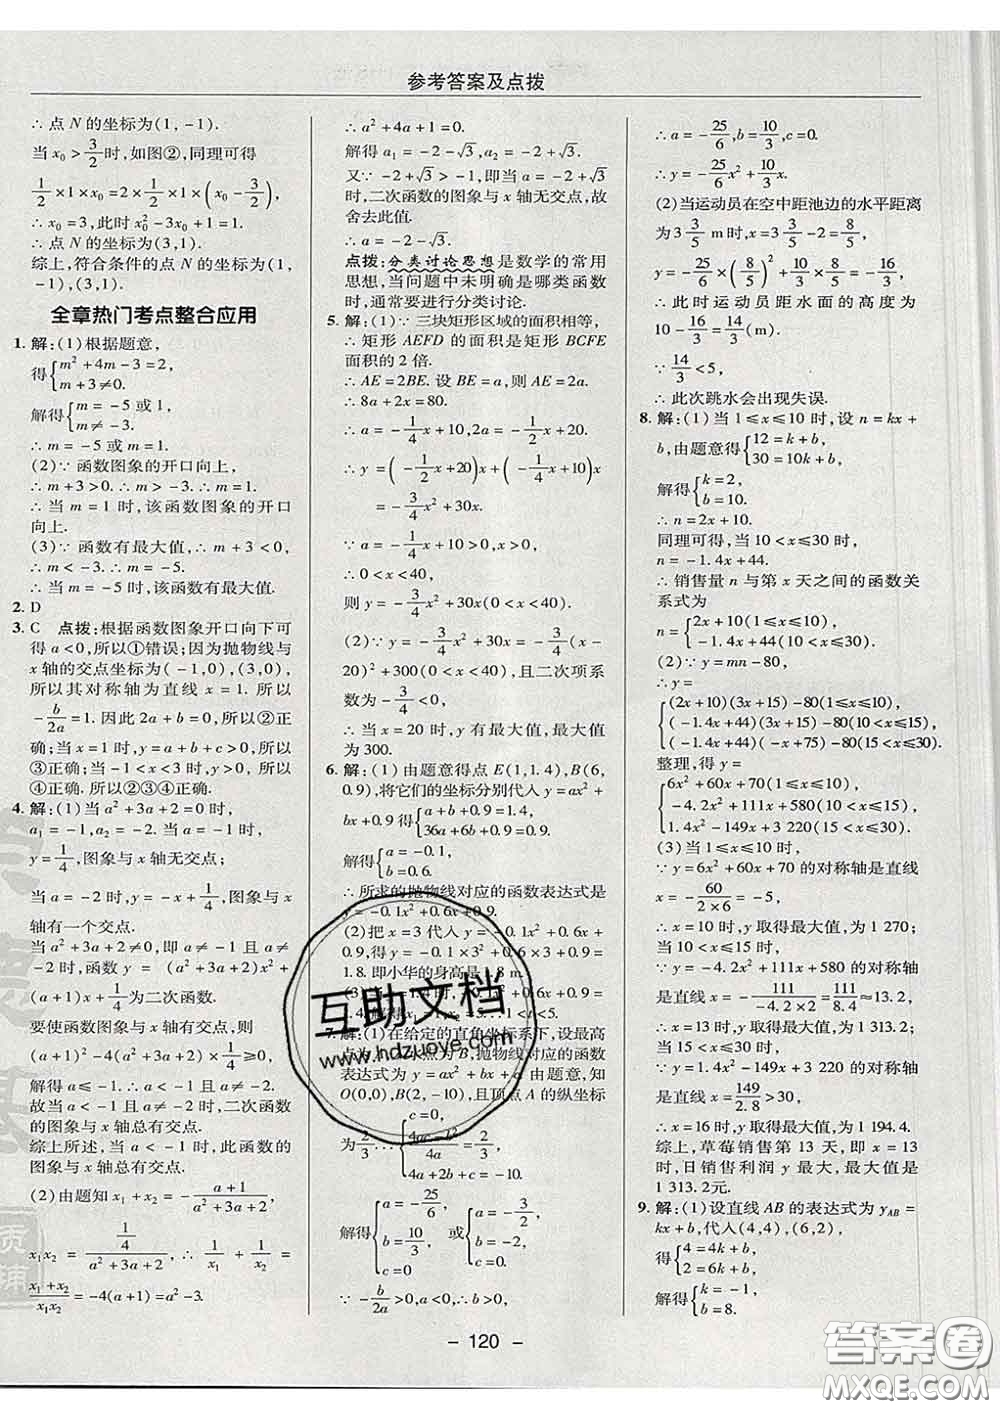 参考答案及点拨
∴ 点 N 的坐标为(1, -1).
当 x₀ > 3/2 时,如图②,同理可得
1/2 × 1 × x₀ = 2 × 1/2 × 1 × (x₀ - 3/2)
∴ x₀ = 3,此时 x₀² - 3x₀ + 1 = 1.
∴ 点 N 的坐标为(3,1).
综上,符合条件的点 N 的坐标为(1,
-1),(3,1).
全章热门考点整合应用
1. 解:(1)根据题意,
得{m² + 4m - 3 = 2, m + 3 ≠ 0.
解得{m = -5 或 1, m ≠ -3.
∴ m = -5 或 m = 1.
(2)∵ 函数图象的开口向上,
∴ m + 3 > 0. ∴ m > -3. ∴ m = 1.
∴ 当 m = 1 时,该函数图象的开口
向上.
(3)∵ 函数有最大值,∴ m + 3 < 0,
∴ m < -3. ∴ m = -5.
∴ 当 m = -5 时,该函数有最大值.
2. D
3. C 点拨:根据函数图象开口向下可
得 a < 0,所以①错误;因为抛物线与
x 轴的交点坐标为(-1,0),(3,0),
所以其对称轴为直线 x = 1. 所以
-b/2a = 1. 因此 2a + b = 0,所以②正
确;当 x = 1 时,y = a + b + c > 0,所
以③正确;当 -1 < x < 3 时,y > 0,所以
④正确. 所以②③④正确.
4. 解:(1)当 a² + 3a + 2 = 0 时,
a₁ = -1,a₂ = -2. 当 a = -1 时,
y = 1/4,图象与 x 轴无交点;
当 a = -2 时,y = -x + 1/4,图象与 x
轴有一个交点;
当 a² + 3a + 2 ≠ 0,即 a ≠ -1 且 a ≠
-2 时,函数 y = (a² + 3a + 2)x² +
(a + 1)x + 1/4 为二次函数.
要使函数图象与 x 轴有交点,则
(a + 1)² - 4(a² + 3a + 2) × 1/4 ≥ 0.
解得 a ≤ -1. 又 a ≠ -1 且 a ≠ -2,
故当 a < -1 且 a ≠ -2 时,二次函数
图象与 x 轴总有交点.
综上所述,当 a < -1 时,此函数的
图象与 x 轴总有交点.
(2)由题知 x₁ + x₂ = -(a + 1)/(a² + 3a + 2),
x₁x₂ = (1/4)/(a² + 3a + 2),∴ 1/x₁ + 1/x₂ =
(x₁ + x₂)/(x₁x₂) = -4(a + 1) = a² - 3.
∴ a² + 4a + 1 = 0.
解得 a₁ = -2 - √3,a₂ = -2 + √3.
又∵ -2 + √3 > -1,即当 a = -2 + √3
时,二次函数的图象与 x 轴无交点,故
舍去此值.
∴ a = -2 - √3.
点拨:分类讨论思想是数学的常用
思想,当问题中未明确是哪类函数
时,通常要进行分类讨论.
5. 解:(1)∵ 三块矩形区域的面积相等,
∴ 矩形 AEFD 的面积是矩形 BCFE
面积的 2 倍.
∴ AE = 2BE. 设 BE = a,则 AE = 2a.
∴ 8a + 2x = 80.
∴ a = -1/4x + 10,2a = -1/2x + 20.
∴ y = (-1/2x + 20)x + (-1/4x + 10)x
= -3/4x² + 30x.
∵ a = -1/4x + 10 > 0,x > 0,
∴ 0 < x < 40,
则 y = -3/4x² + 30x(0 < x < 40).
(2)∵ y = -3/4x² + 30x = -3/4(x -
20)² + 300(0 < x < 40),且二次项系
数为 -3/4 < 0,
∴ 当 x = 20 时,y 有最大值,最大值
为 300.
6. 解:(1)由题意得点 E(1,1.4),B(6,
0.9),将它们的坐标分别代入 y = ax² +
bx + 0.9 得{a + b + 0.9 = 1.4, 36a + 6b + 0.9 = 0.9.
解得{a = -0.1, b = 0.6.
∴ 所求的抛物线对应的函数表达式是
y = -0.1x² + 0.6x + 0.9.
(2)把 x = 3 代入 y = -0.1x² + 0.6x +
0.9,得 y = -0.1 × 3² + 0.6 × 3 + 0.9 =
1.8. 即小华的身高是 1.8 m.
7. 解:(1)在给定的直角坐标系下,设最高
点为 A,入水点为 B,抛物线对应的函数
表达式为 y = ax² + bx + c. 由题意,知
O(0,0),B(2,-10),且顶点 A 的纵坐标
为 2/3. ∴{c = 0, (4ac - b²)/4a = 2/3, 4a + 2b + c = -10.
解得{a = -25/6, b = 10/3, c = 0 或{a = -3/2, b = -2, c = 0.
∵ -b/2a > 0,a < 0,∴ b > 0,
∴ a = -25/6,b = 10/3,c = 0.
∴ y = -25/6x² + 10/3x.
(2)当运动员在空中距池边的水平距离
为 3 3/5 m 时,x = 3 3/5 - 2 = 8/5,
y = -25/6 × (8/5)² + 10/3 × 8/5 = -16/3,
∴ 此时运动员距水面的高度为
10 - 16/3 = 14/3(m).
∵ 14/3 < 5,
∴ 此次跳水会出现失误.
8. 解:(1)当 1 ≤ x ≤ 10 时,设 n = kx +
b,由题意得{12 = k + b, 30 = 10k + b,
解得{k = 2, b = 10.
∴ n = 2x + 10.
同理可得,当 10 < x ≤ 30 时,
n = -1.4x + 44,
∴ 销售量 n 与第 x 天之间的函数关
系式为
n = {2x + 10(1 ≤ x ≤ 10), -1.4x + 44(10 < x ≤ 30).
(2)∵ y = mn - 80,
∴ y =
{(2x + 10)(3x + 15) - 80(1 ≤ x ≤ 10),
(-1.4x + 44)(3x + 15) - 80(10 < x < 15),
(-1.4x + 44)(-x + 75) - 80(15 ≤ x ≤ 30),
整理,得 y =
{6x² + 60x + 70(1 ≤ x ≤ 10),
-4.2x² + 111x + 580(10 < x < 15),
1.4x² - 149x + 3 220(15 ≤ x ≤ 30).
(3)当 1 ≤ x ≤ 10 时,
∵ y = 6x² + 60x + 70 的对称轴是直线
x = -60/(2 × 6) = -5,
∴ x = 10 时,y 取得最大值,为 1 270.
当 10 < x < 15 时,
∵ y = -4.2x² + 111x + 580 的对称轴
是直线 x = -111/(-4.2 × 2) = 111/8.4,
∴ x = 13 时,y 取得最大值,为 1 313.2;
当 15 ≤ x ≤ 30 时,
∵ y = 1.4x² - 149x + 3 220 的对称轴
是直线 x = 149/2.8 > 30,
∴ x = 16 时,y 取得最大值,为 1 194.4.
综上,草莓销售第 13 天,即 x = 13
时,日销售利润 y 最大,最大值是
1 313.2元.
9. 解:(1)设直线 AB 的表达式为 y_AB =
kx + b,代入(4,4),(6,2),
得{4 = 4k + b, 2 = 6k + b,
解得{k = -1, b = 8.
- 120 -
互助文档
www.hdzuoye.com
答案圈
MXQE.COM